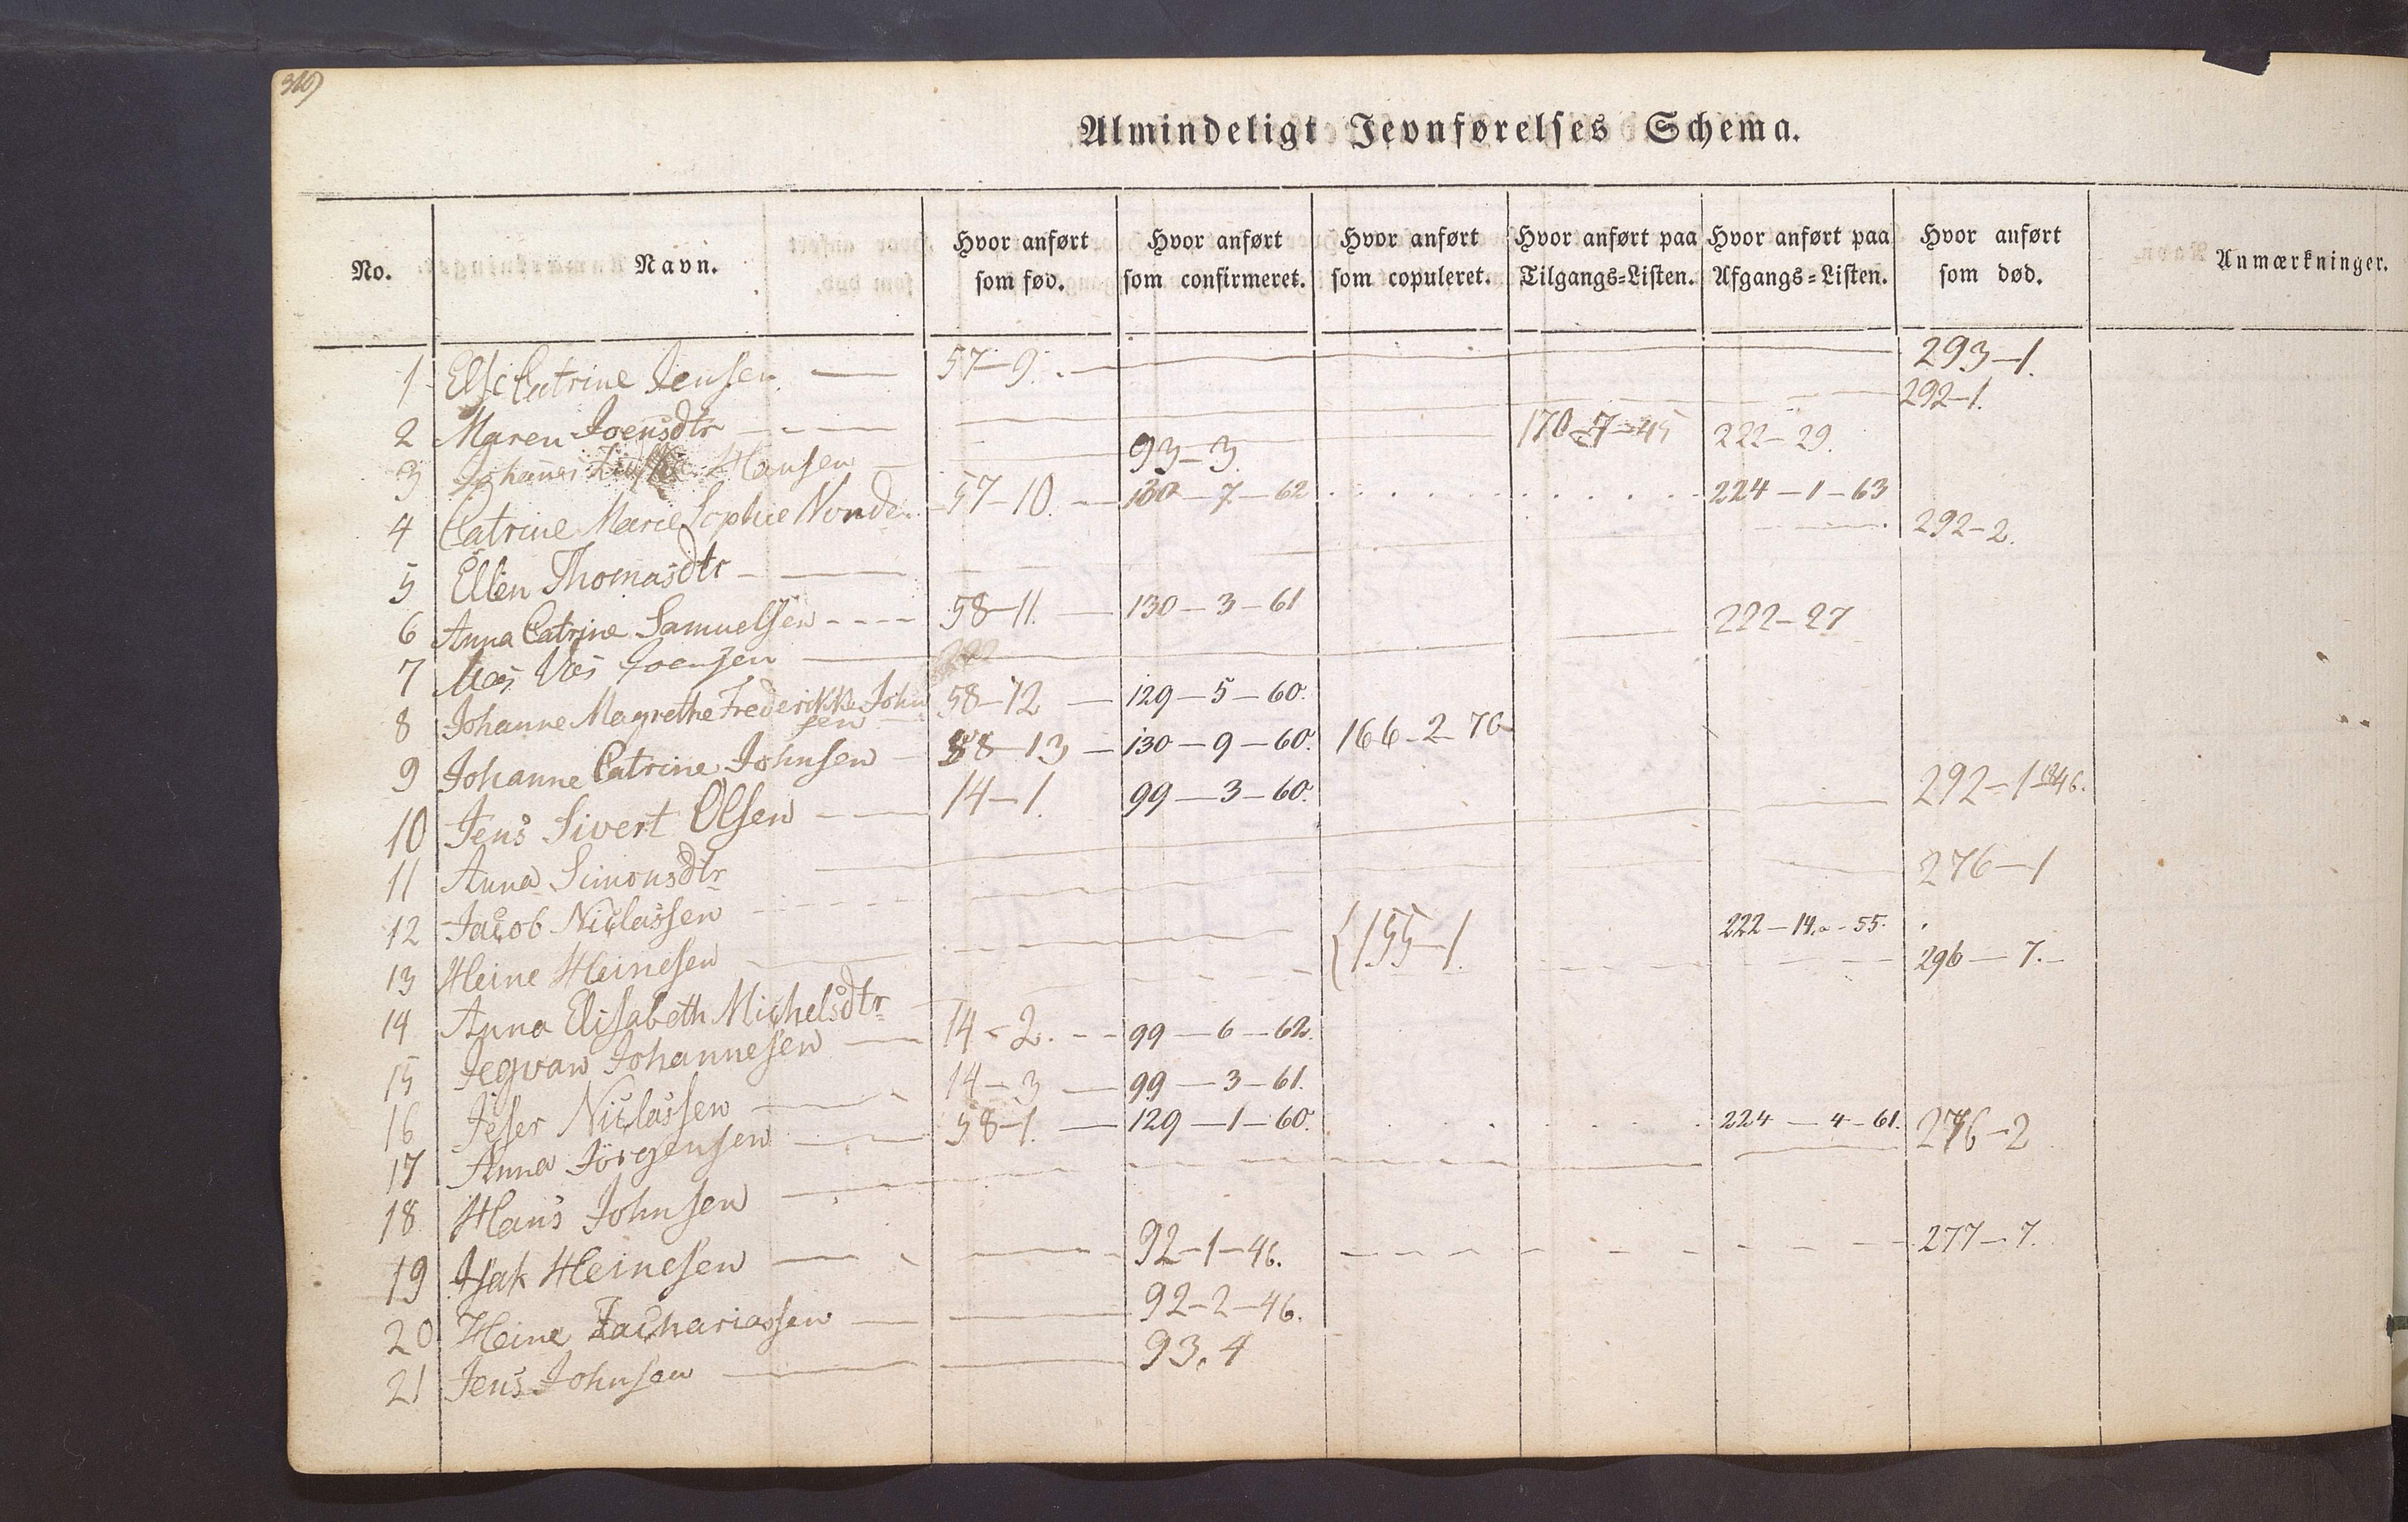 Almindeligt Jevnførelses Schema.
No. Navn. Hvor anført som fød. Hvor anført som confirmeret. Hvor anført som copuleret. Hvor anført paa Tilgangs-Listen. Hvor anført paa Afgangs-Listen. Hvor anført som død. Anmærkninger.
1 Else Catrine Jensen 57-9. 293-1.
2 Maren Joensdtr 292-1.
3 Johannes Hansen 93-3. 222-29.
4 Catrine Marie Sophie 57-10. 130-7-62 224-1-63
5 Ellen Thomasdtr 292-2.
6 Anna Catrine Samuelsen 58-11. 130-3-61
7 Joensen 222-27
8 Johanne Magrethe Frederikke John
sen 58-12 129-5-60.
9 Johanne Catrine Johnsen 58-13 130-9-60. 166-2-70
10 Jens Sivert Olsen 14-1. 99-3-60.
11 Anna Simonsdtr 292-1-1846.
12 Jacob Niclassen 276-1
13 Heine Heinesen {155-1. 222-14.a-55.
14 Anna Elisabeth Michelsdtr 296-7.
15 Jegvan Johannesen 14-2. 99-6-62.
16 Jeser Niclassen 14-3 99-3-61.
17 Anna Jörgensen 58-1. 129-1-60. 224-4-61.
18 Hans Johnsen 276-2
19 Isak Heinesen 92-1-46. 277-7.
20 Heine Zachariassen 92-2-46.
21 Jens Johnsen 93.4